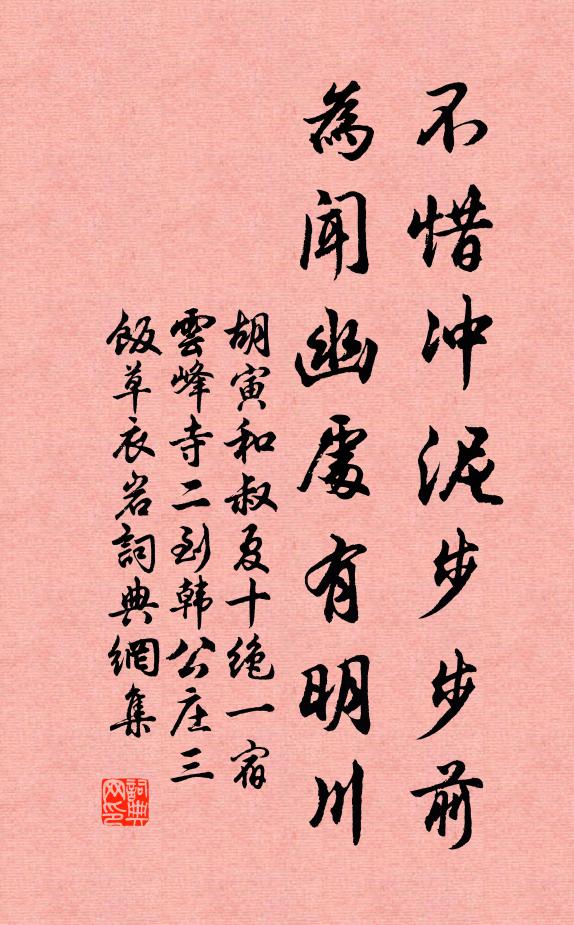 不惜冲泥步步前
為聞幽處有明川
胡寅和叔夏十絶一宿
雲峰寺二到韩公庄三
飯草衣岩詞典網集
詞典网印